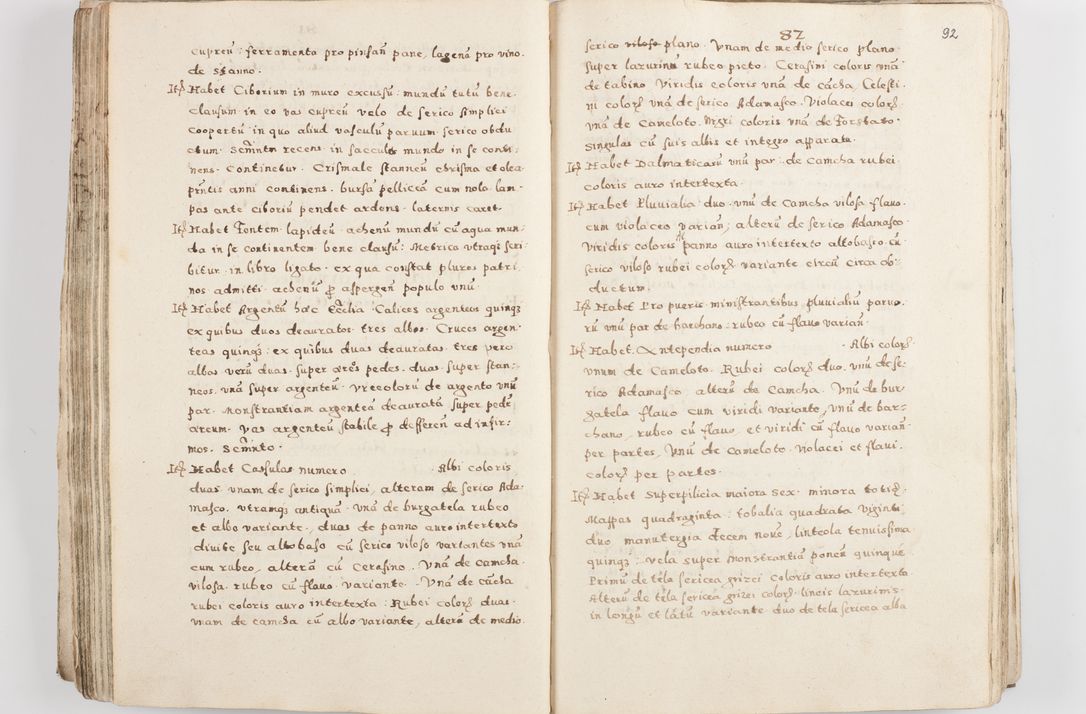 cupreū: ferramenta pro pinsañ pane, lagenā pro vino.
de stanno.
Itē Habet Ciborium in muro excussū: mundū tutū bene.
clausum in eo vas cupreū velo de serico simplici
coopertū in quo aliud vasculū paruum. serico obdu
ctum. Scm̄nto recens in sacculo mundo in se conti-
nens. Continetur. Crismale stanneū chrisma et olea
pn̄tis anni continens. bursā pelliceā cum nola. lam-
pas ante ciboriū pendet ardens. laternis caret.
Itē Habet Fontem lapideū. ahenū mundū cū aqua mun-
da in se continentem bene clausū: Metrica utraqȝ scri
bitur in libro ligato. ex qua constat plures patri
nos admitti. ahenū ꝓ aspergeñ populo unū.
Itē Habet Argentū hæc Eccl̄ia. Calices argenteos quinqȝ
ex quibus duos deauratos. tres albos. Cruces argen-
teas quinqȝ: ex quibus duas deauratas. tres vero
albas verū duas. super æreos pedes. duas. super stan-
neos. unā super argenteū. vrceolorū de argento unū
par. monstrantiam argenteā deauratā super pedē
æreum. vas argenteū stabile ꝓ defferen̄ ad infir-
mos. Scm̄nto.
Itē Habet Cassulas numero Albi coloris
duas. unam de serico simplici, alteram de serico Ada-
masco. utramqȝ antiquā. Unā de burgatela rubeo
et albo variante, duas de panno auro intertexto
divite seu altobaso cū serico viloso variantes unā
cum rubeo, alterā cū Cerasino. Unā de camcha.
vilosa. rubeo cū flauo variante. Unā de cācha
rubei coloris auro intertexta: Rubei colorȝ duas.
unam de camcha cū albo variante, alterā de medio.
87 92
serico viloso plano. Unam de medio serico plano
super lazurinū rubeo picto. Cerasini coloris unā
de tabino Viridis coloris unā de cācha, Celesti-
ni colorȝ unā de serico Adamasco. Violacei colorȝ
unā de Cameloto. Nigri coloris unā de Forstato.
singulas cū suis albis et integro apparatu.
Itē Habet Dalmaticarū unū par. de Camcha rubei
coloris auro intertexta.
Itē Habet Pluvialia duo. unū de Camcha vilosa flauo
cum violaceo varian̄; alterū de serico Adamasco
Viridis coloris panno auro intertexto altobasso cū
serico viloso rubei colorȝ variante circū circa ob-
ductum.
Itē Habet Pro pueris ministrantibus pluvialiū paruo.
rū unū par de harchano: rubeo cū flauo varian̄.
Itē Habet. Antependia numero Albi colorȝ
unum de Cameloto. Rubei colorȝ duo. unū de se-
rico Adamasco, alterū de Camcha. Unū de bur-
gatela flauo cum viridi variante, unū de bar-
chano, rubeo cū flauo, et viridi cū flauo varian̄
per partes, Unū de Cameloto. violacei et flaui.
colorȝ per partes.
Itē Habet Superpilicia maiora sex. minora totiȝ.
Mappas quadraginta: tobalia quadrata viginti
duo manutergia decem nove, linteola tenuissima
quinqȝ: vela super Monstrantiā ponen̄ quinque
Primū de tela sericea grizei Coloris auro intertexta
Alterū de tela sericea grizei colorȝ. lineis lazurinis.
in longū et latū variante duo de tela sericea alba